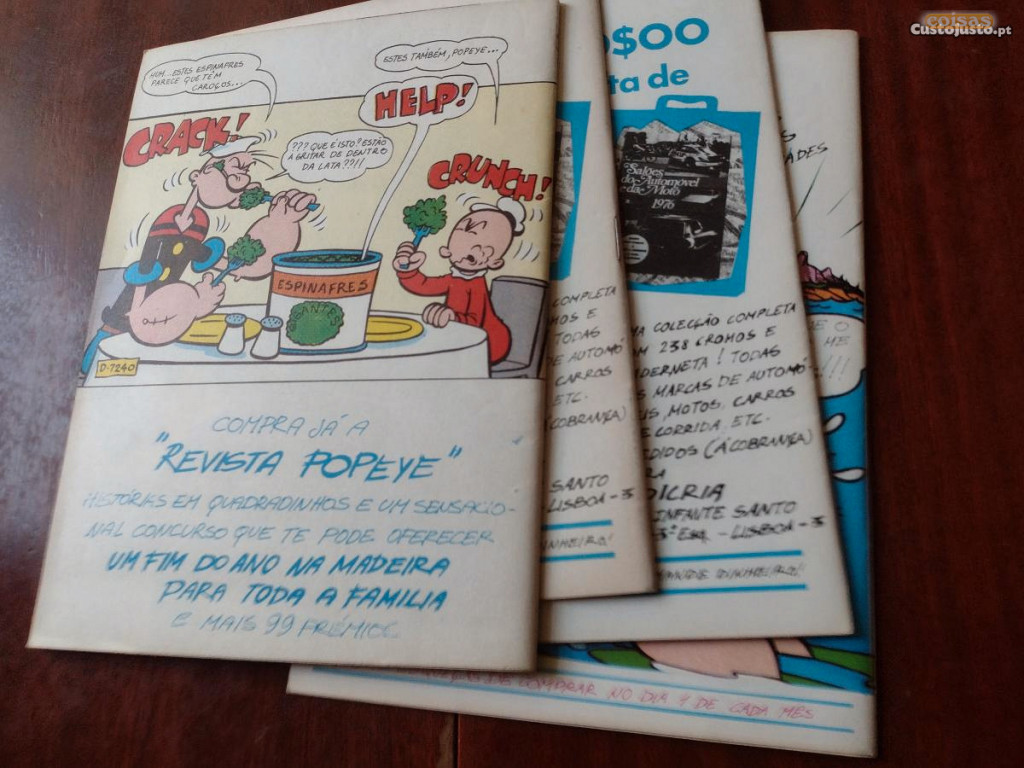 coisas
Custojusto.pt
HUM... ESTES ESPINAFRES
PARECE QUE TÊM
CAROÇOS...
ESTES TAMBÉM, POPEYE...
CRACK!
HELP!
??? QUE É ISTO? ESTÃO
A GRITAR DE DENTRO
DA LATA??!!
CRUNCH!
ESPINAFRES
GIGANTES
D-7240
COMPRA JÁ A
"REVISTA POPEYE"
HISTÓRIAS EM QUADRADINHOS E UM SENSACIO-
NAL CONCURSO QUE TE PODE OFERECER
UM FIM DO ANO NA MADEIRA
PARA TODA A FAMILIA
E MAIS 99 PRÉMIOS
COMPLETA
MOS E
TODAS
E AUTOMÓ
CARROS
ETC.
COBRANÇA)
SANTO
LISBOA-3
NHEIRO!
$00
ta de
Salões
do Automóvel
e da Moto
1976
MA COLECÇÃO COMPLETA
M 238 CROMOS E
DERNETA! TODAS
S MARCAS DE AUTOMÓ-
US, MOTOS, CARROS
E CORRIDA, ETC.
DIDOS (À COBRANÇA)
RA
DICRIA
INFANTE SANTO
3º ESQ. - LISBOA-3
DINHEIRO!
ADES
E O
ME
!!!
DE COMPRAR NO DIA 1 DE CADA MÊS